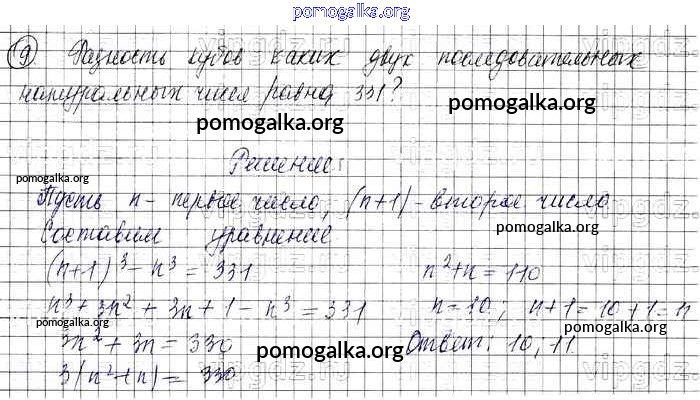 pomogalka.org
9 Разность кубов каких двух последовательных
натуральных чисел равна 331?
pomogalka.org
pomogalka.org
Решение:
pomogalka.org
Пусть n - первое число, (n+1) - второе число
Составим уравнение
(n+1)³ - n³ = 331
n³ + 3n² + 3n + 1 - n³ = 331
pomogalka.org
3n² + 3n = 330
3(n² + n) = 330
n² + n = 110
n = 10; n+1 = 10 + 1 = 11
pomogalka.org
Ответ: 10; 11
pomogalka.org